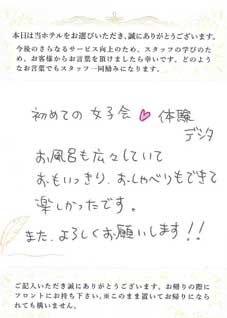 本日は当ホテルをお選びいただき、誠にありがとうございます。
今後のさらなるサービス向上のため、スタッフの学びのた
め、お客様からお言葉を頂けましたら幸いです。どのよう
なお言葉でもスタッフ一同励みになります。
初めての女子会♡体験
デシタ
お風呂も広々していて
おもいっきり、おしゃべりもできて
楽しかったです。
また、よろしくお願いします!!
ご記入いただき誠にありがとうございます。お帰りの際に
フロントにお持ち下さい。※このまま置いてお帰りになら
れても構いません。